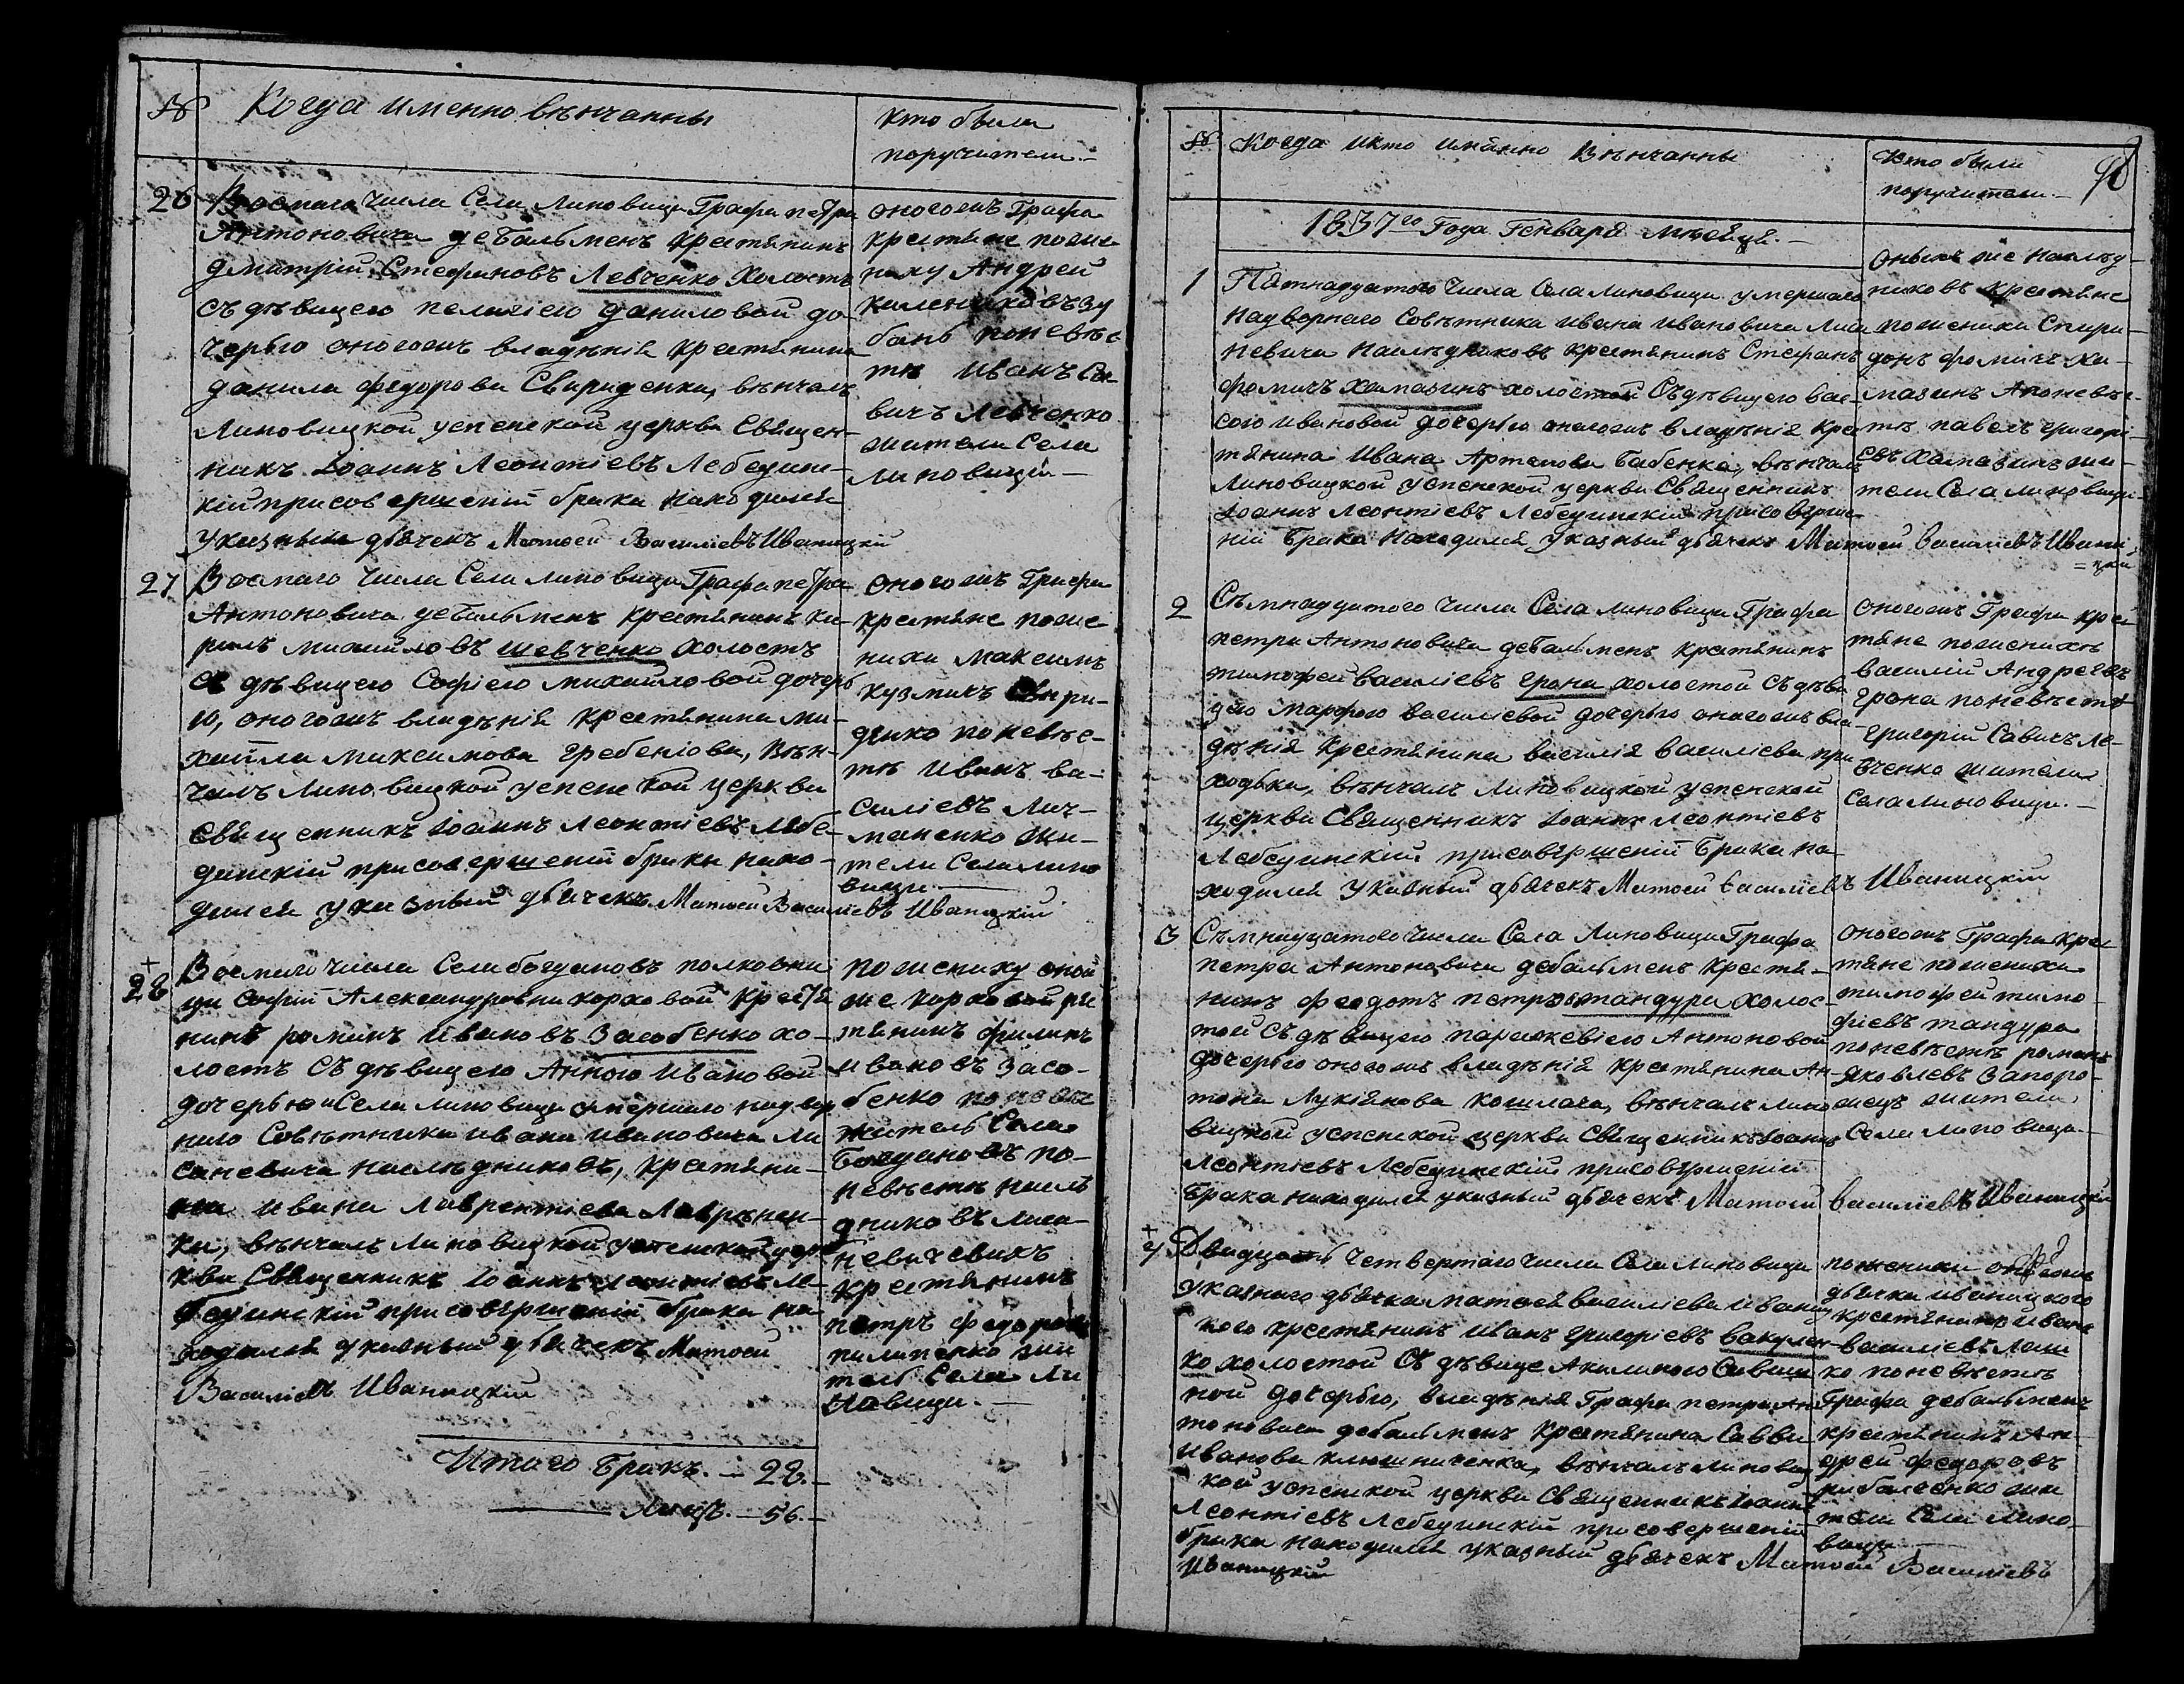 №
Когда именно вѣнчанны
Кто были
поручители
26
Восмаго числа Села Линовици Графа петра
Антоновича дебальменъ крестянинъ
дмитрій Стефановъ Левченко холостъ
съ дѣвицею пелагіею даниловой до-
черью оногожъ владѣнія крестянина
данила федорова Свириденка, вѣнчалъ
Линовицкой успенской церкви Священ-
никъ Іоаннъ Леонтіевъ Лебедин-
кій присовершеніи брака находился
указный дьячекъ Матѳей Василіевъ Иваницкій
оногожъ Графа
крестяне поже-
ниху Андрей
бань поневѣс
тѣ иванъ Са-
вичъ Левченко
жители Села
линовици
27
Восмаго числа Села линовици Графа петра
Антоновича дебальменъ крестянинъ ки-
рилъ михайловъ шевченко холостъ
съ дѣвицею Софіею михайловой дочерь
ю, оногожъ владѣнія крестянина ми-
хайла максимова гребенюва, вѣн-
чалъ Линовицкой успенской церкви
Священникъ Іоаннъ Леонтіевъ Лебе-
динскій присовершеніи брака нахо-
дился указный дьячекъ Матѳей Василіевъ Иваницкій
оногожъ Графа
крестяне поже
ниху максимъ
кузмичъ Свири-
денко поневѣс-
тѣ иванъ ва-
силіевъ лич-
маненко жи-
тели Села лино
вици
28
Восмаго числа Села богдановъ полковни
ци Софіи Александровни корховой крестя
нинъ романъ ивановъ Засобенко хо-
лостъ съ дѣвицею Анною ивановой
дочерью Села линовици умершаго надвор
наго Совѣтника ивана ивановича ли
саневича наслѣдниковъ, крестяни-
на ивана лаврентіева Лаврѣнен-
ка, вѣнчалъ линовицкой успенской цер
кви Священникъ Іоаннъ леонтіевъ Ле-
бединскій присовершеніи брака на
ходился указный дьячекъ Матѳей
Василіевъ Иваницкій
пожениху оной
же корховой кре
тянинъ филипъ
ивановъ Засо-
бенко
житель Села
Богдановъ по-
невѣстѣ наслѣ
дниковъ лиса-
невичевихъ
крестянинъ
петръ федоровъ
пилипенко жи
тель Села Ли
новици.
Итого Бракъ. - 28.
Лицъ. - 56.
№
Когда икто имянно Вѣнчанны
Кто были
поручители.
1837го Года Генваря мѣсяця.
1
Пятнадцатого числа Села линовици умершаго
надворнаго Совѣтника ивана ивановича лиса
невича наслѣдниковъ крестянинъ Стефанъ
фомичъ хамазинъ холостой Съдѣвицею вас-
сою ивановой дочерью оногожъ владѣнія крес
тянина ивана Артемова бабенка, вѣнчалъ
линовицкой успенской церкви Священникъ
Іоаннъ леонтіевъ Лебединскій присоверше-
ніи Брака находился указный дьячекъ Матѳей Василіевъ Ивани
=цкій
Оныхъ же наслѣд-
никовъ крестяне
пожениху Спири-
донъ фомичъ ха-
мазинъ Апоневѣс-
тѣ павелъ григорі-
евъ хамазинъ жи-
тели Села линовици
2
Съмнадцатого числа Села линовици Графа
петра Антоновича дебальменъ крестянинъ
тимофей василіевъ грона холостой Съдѣви
цею марфою василіевой дочерью оногожъ вла-
дѣнія крестянина василія василіева при
ходька, вѣнчалъ линовицкой успенской
церкви Священникъ Іоаннъ леонтіевъ
Лебединскій присовершеніи Брака на
ходился указный дьячекъ Матѳей Василіевъ Иваницкій
оногожъ Графа крес
тяне пожениху
василій Андреевъ
грона поневѣстѣ
григорій Савичъ ле-
вченко жители
Села линовици.
3
Съмнадцатого числа Села Линовици Графа
петра Антоновича дебальменъ крестя-
нинъ федотъ петровъ тандура холос-
той Съдѣвицею параскевіею Антоновой
дочерью оногожъ владѣнія крестянина Ан-
тона Лукіянова кошлача, вѣнчалъ лино
вицкой успенской церкви Священникъ Іоаннъ
леонтіевъ Лебединскій присовершеніи
Брака находился указный дьячекъ Матѳей Василіевъ Иваницкій
оногожъ Графа крес
тяне пожениху
тимофей тимо-
фіевъ тандура
поневѣстѣ романъ
яковлевъ Запоро-
жецъ жители
Села линовици
4
Двадцать четвертаго числа Села линовици
указного дьячка матѳея василіева ивани
кого крестянинъ иванъ григоріевъ вакулен-
ко холостой Съ дѣвице Акилиною Савви
ной дочерью, владѣнія Графа петра Ан
тоновича дебальменъ крестянина Савви
иванова ключниченка, вѣнчалъ линовиц
кой успенской церкви Священникъ Іоаннъ
Леонтіевъ Лебединскій присовершеніи
брака находился указный дьячекъ Матѳей Василіевъ
Иваницкій
пожениху оногожъ
дьячка иваницкого
крестянинъ иванъ
василіевъ
ко поневѣстѣ
Графа дебальменъ
крестянинъ Ан-
дрей федоровъ
рибалченко жи
тели Села лино-
вици